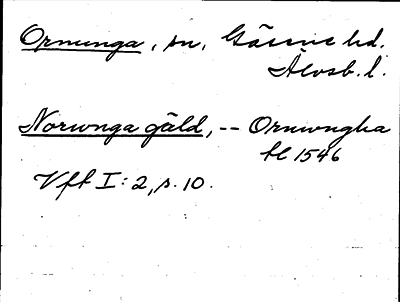 Ornunga, sn, Gäsene hd.
Älvsb. l.
Norwnga gäld, -- Ornwngha
tl 1546
Vft I: 2, s. 10.